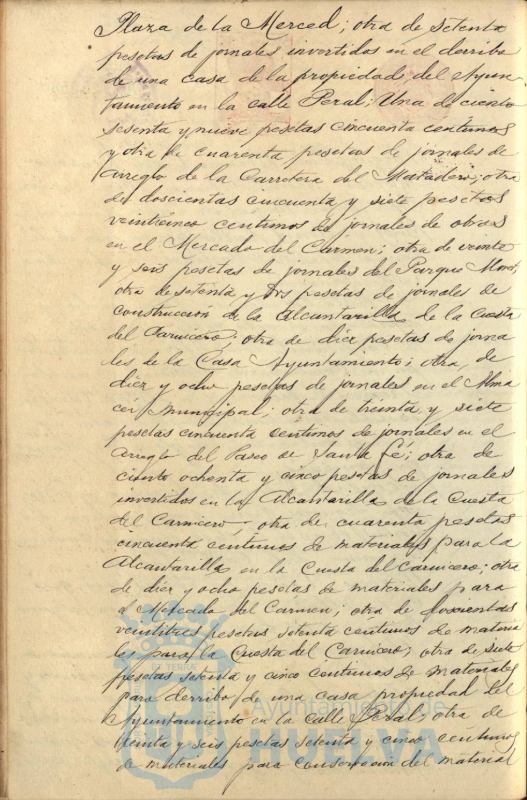 Plaza de la Merced; otra de setenta
pesetas de jornales invertidos en el derribo
de una casa de la propiedad del Ayun
tamiento en la calle Peral; Una de ciento
sesenta y nueve pesetas cincuenta centimos
y otra de cuarenta pesetas de jornales de
arreglo de la Carretera del Matadero; otra
de doscientas cincuenta y siete pesetas
veinticinco centimos de jornales de obras
en el Mercado del Carmen; otra de veinte
y seis pesetas de jornales del Parque
otra de setenta y dos pesetas de jornales de
construccion de la Alcantarilla de la Cuesta
del Carnicero; otra de diez pesetas de jorna
les de la Casa Ayuntamiento; otra de
diez y ocho pesetas de jornales en el Alma
cen municipal; otra de treinta y siete
pesetas cincuenta centimos de jornales en el
arreglo del Paseo de Santa Fé; otra de
ciento ochenta y cinco pesetas de jornales
invertidos en la Alcantarilla de la Cuesta
del Carnicero; otra de cuarenta pesetas
cincuenta centimos de materiales para la
Alcantarilla en la Cuesta del Carnicero; otra
de diez y ocho pesetas de materiales para
el Mercado del Carmen; otra de doscientas
veintitres pesetas setenta centimos de materia
les para la Cuesta del Carnicero; otra de siete
pesetas setenta y cinco centimos de materiales
para derribo de una casa propiedad del
Ayuntamiento en la calle Peral; otra de
treinta y seis pesetas setenta y cinco centimos
de materiales para conservacion del material
Ayuntamiento de
HUELVA